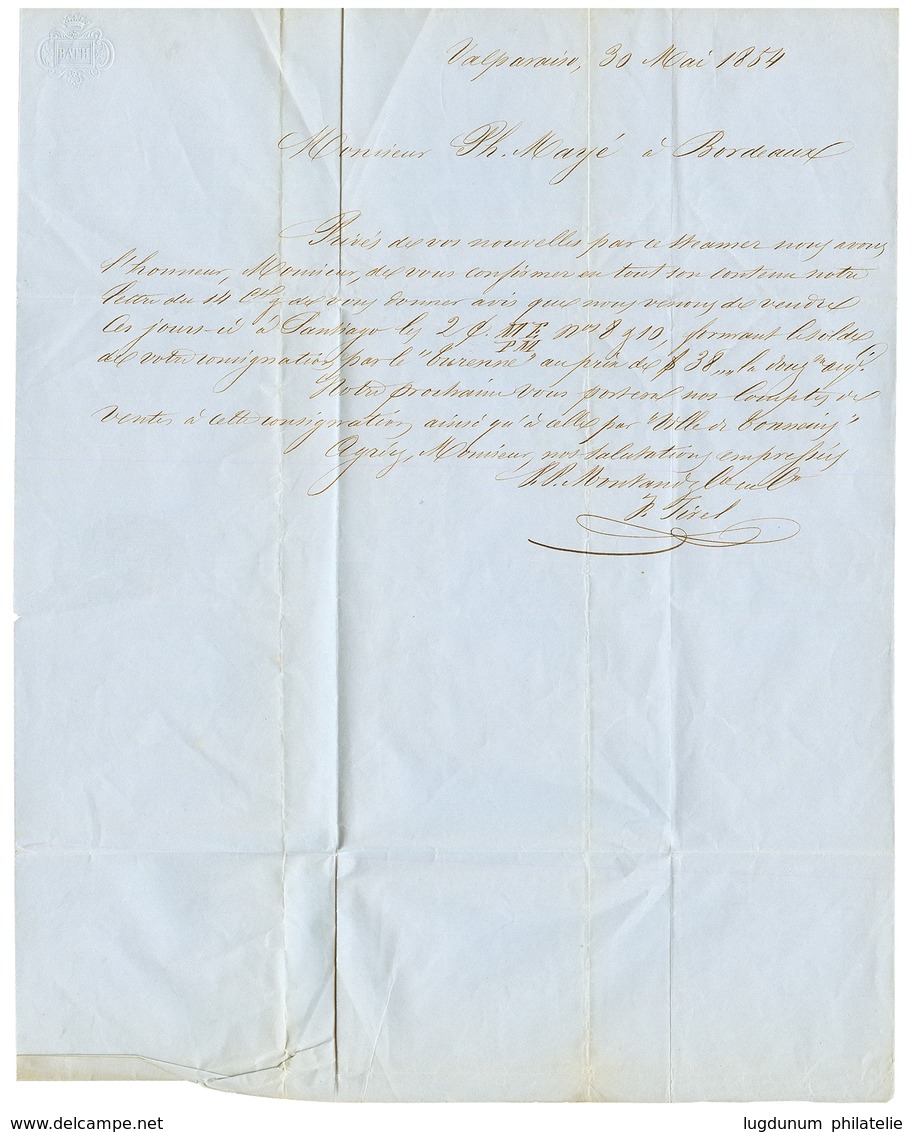 BATH
Valparaiso, 30 Mai 1854
Monsieur Ph. Mayé à Bordeaux
Privés de vos nouvelles par ce steamer nous avons
l'honneur, Monsieur, de vous confirmer en tout son contenu notre
lettre du 14 Ct & de vous donner avis que nous venons de vendre
ces jours-ci à Santiago les 2 C. nos 8 & 10, formant le solde
de votre consignation par le "Turenne" au prix de $ 38 la
Notre prochaine vous portera nos Comptes de
ventes à cette consignation ainsi qu'à celles par "Ville de Tonneins"
Agréez, Monsieur, nos salutations empressées
P.P.
delcampe.net
lugdunum philatelie